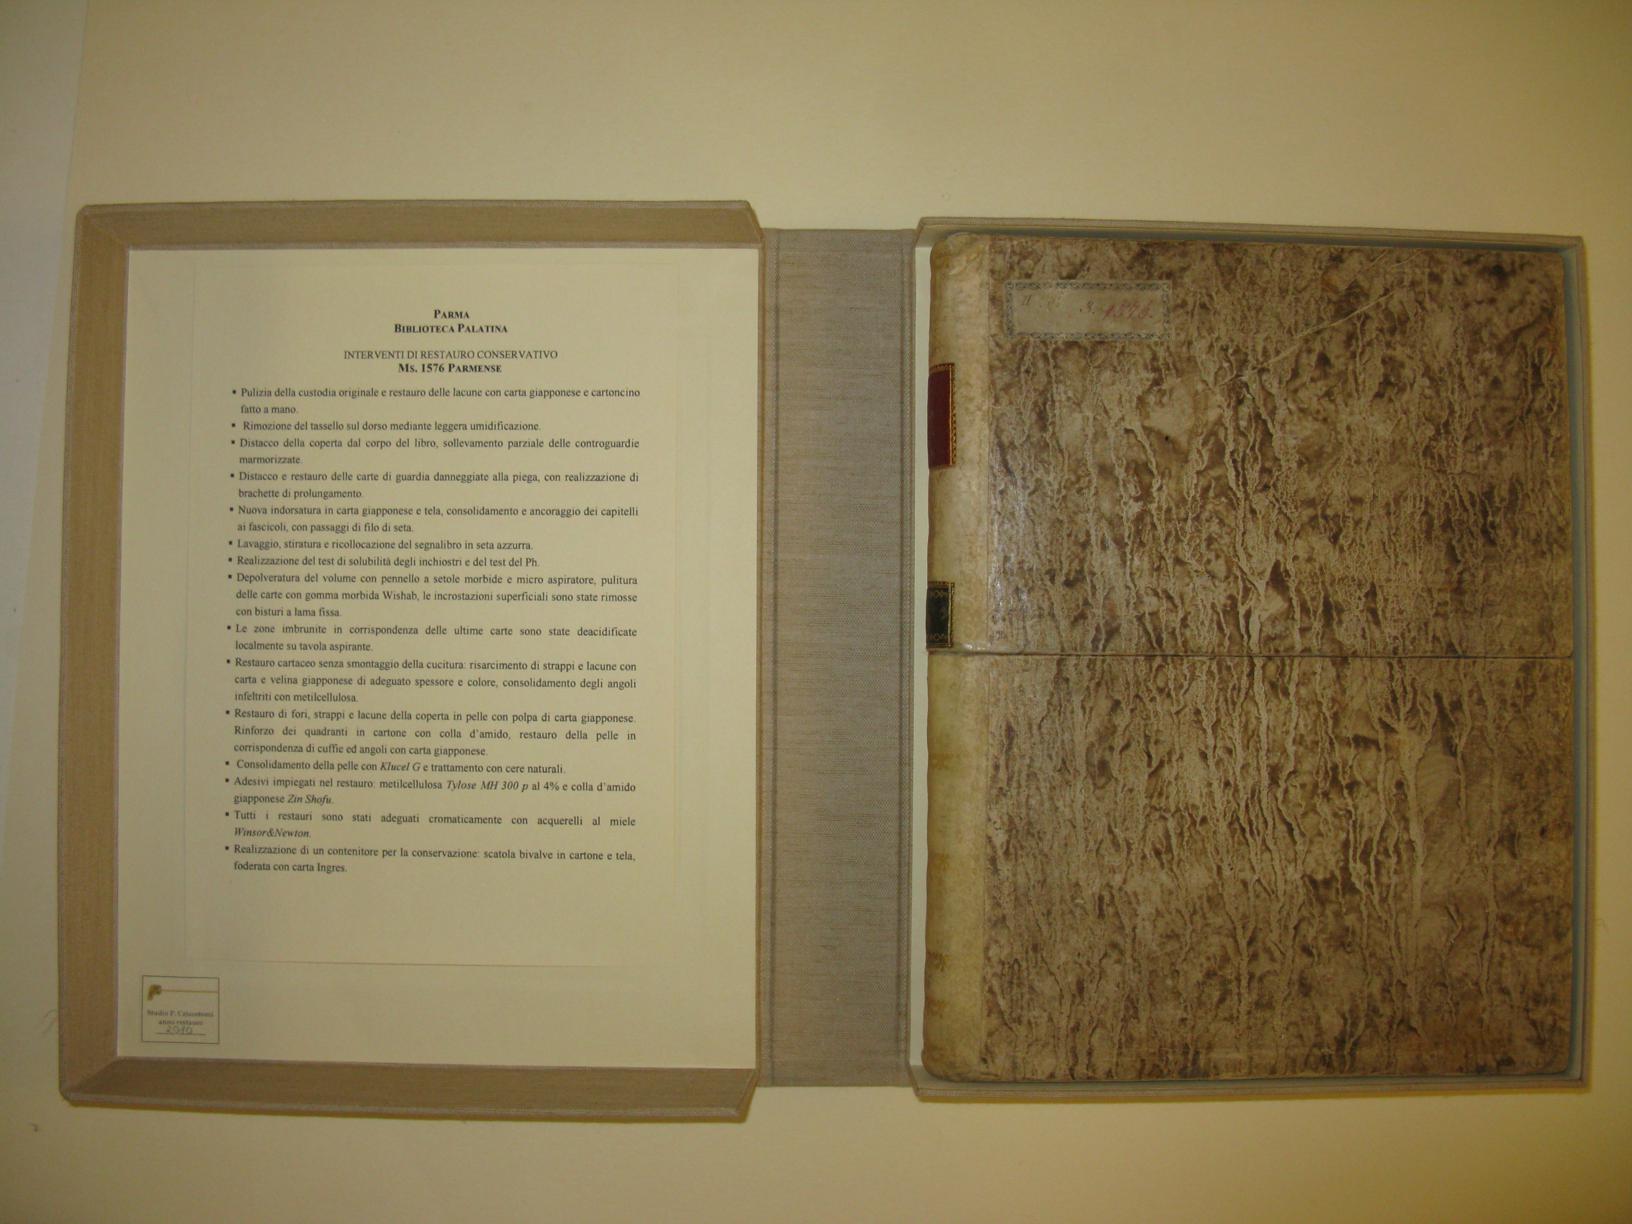 PARMA
BIBLIOTECA PALATINA
INTERVENTI DI RESTAURO CONSERVATIVO
MS. 1576 PARMENSE
▪ Pulizia della custodia originale e restauro delle lacune con carta giapponese e cartoncino
fatto a mano.
▪ Rimozione del tassello sul dorso mediante leggera umidificazione.
▪ Distacco della coperta dal corpo del libro, sollevamento parziale delle controguardie
marmorizzate.
▪ Distacco e restauro delle carte di guardia danneggiate alla piega, con realizzazione di
brachette di prolungamento.
▪ Nuova indorsatura in carta giapponese e tela, consolidamento e ancoraggio dei capitelli
ai fascicoli, con passaggi di filo di seta.
▪ Lavaggio, stiratura e ricollocazione del segnalibro in seta azzurra.
▪ Realizzazione del test di solubilità degli inchiostri e del test del Ph.
▪ Depolveratura del volume con pennello a setole morbide e micro aspiratore, pulitura
delle carte con gomma morbida Wishab, le incrostazioni superficiali sono state rimosse
con bisturi a lama fissa.
▪ Le zone imbrunite in corrispondenza delle ultime carte sono state deacidificate
localmente su tavola aspirante.
▪ Restauro cartaceo senza smontaggio della cucitura: risarcimento di strappi e lacune con
carta e velina giapponese di adeguato spessore e colore, consolidamento degli angoli
infeltriti con metilcellulosa.
▪ Restauro di fori, strappi e lacune della coperta in pelle con polpa di carta giapponese.
Rinforzo dei quadranti in cartone con colla d'amido, restauro della pelle in
corrispondenza di cuffie ed angoli con carta giapponese.
▪ Consolidamento della pelle con Klucel G e trattamento con cere naturali.
▪ Adesivi impiegati nel restauro: metilcellulosa Tylose MH 300 p al 4% e colla d'amido
giapponese Zin Shofu.
▪ Tutti i restauri sono stati adeguati cromaticamente con acquerelli al miele
Winsor&Newton.
▪ Realizzazione di un contenitore per la conservazione: scatola bivalve in cartone e tela,
foderata con carta Ingres.
Studio P.
anno restauro
2010
1576.